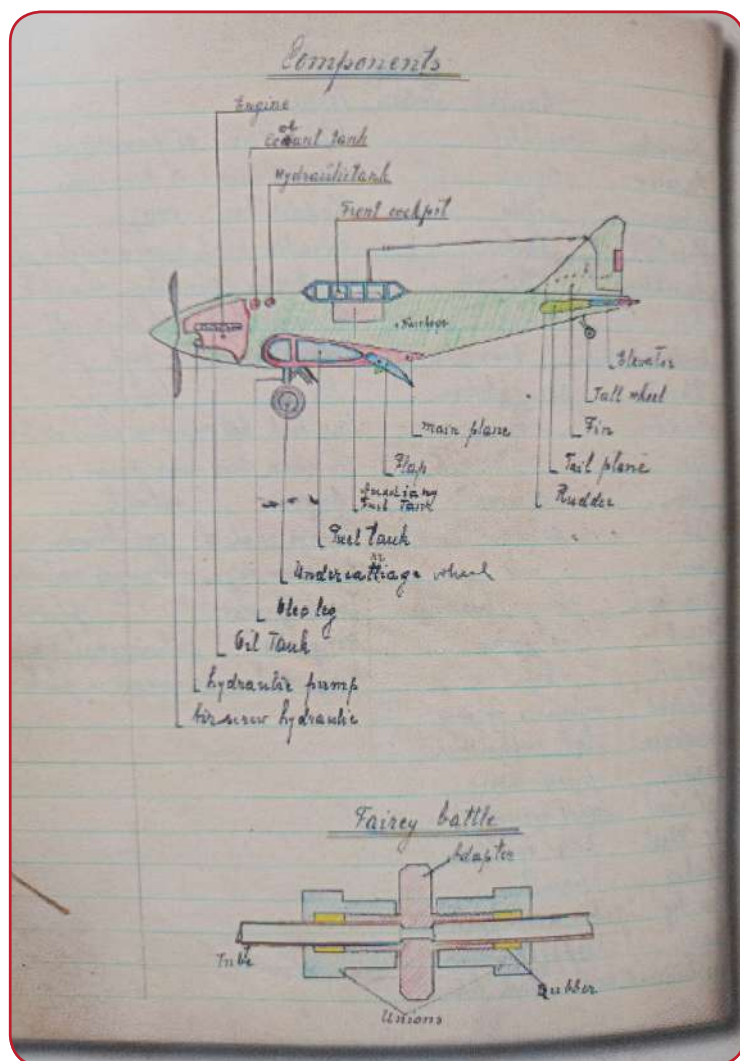 Components
Engine
Coolant tank
Hydraulic tank
Front cockpit
Elevator
Tail wheel
main plane
Fin
Flap
Tail plane
Fuel Tank
Rudder
Fuel tank
Undercarriage wheel
Oleo leg
Oil Tank
hydraulic pump
Airscrew hydraulic
Fairey battle
Adapter
Tube
Rubber
Unions